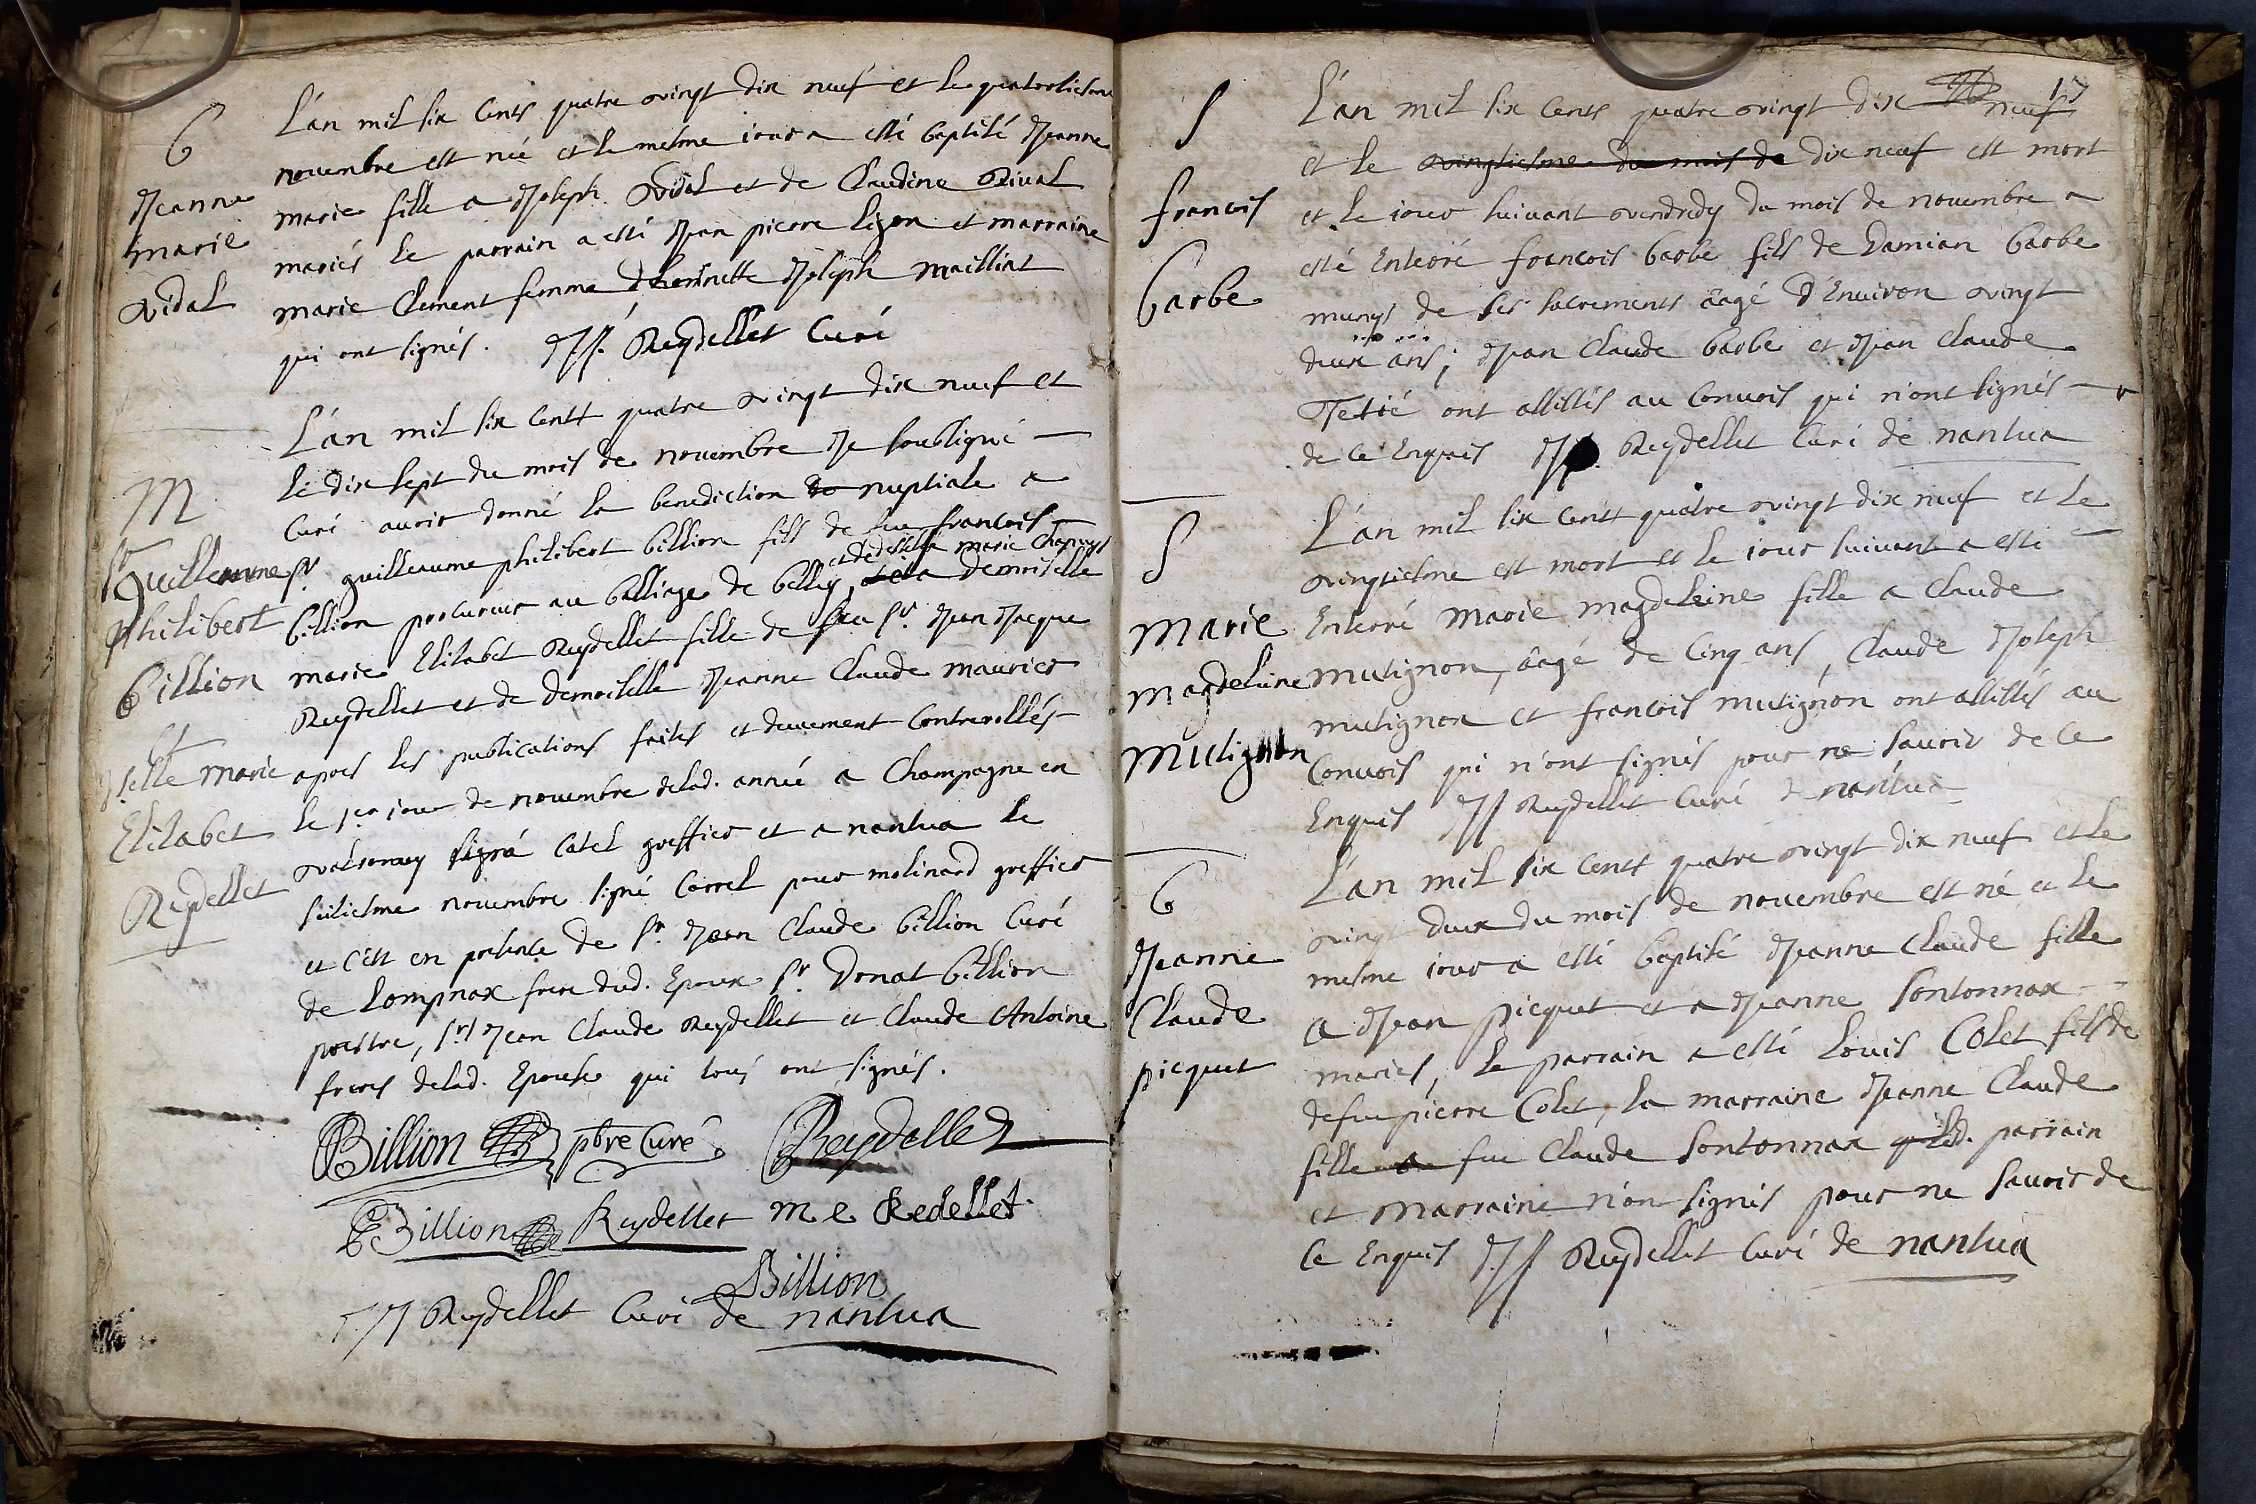 B
Jeanne
marie
Vidal
L'an mil six cents quatre vingt dix neuf et le quatorziesme
novembre est née et le mesme iour a esté baptisé Jeanne
marie fille a Joseph Vidal et de Claudine Rival
mariés le parrain a esté Jean pierre ligon et marraine
marie Clement femme d'honnette Joseph maillat
qui ont signés. JJ. Reydellet Curé
M
Sr Guilleaume
philibert
Billion
et
dselle marie
Elisabet
Reydellet
L'an mil six centt quatre vingt dix neuf et
le dix sept du mois de novembre Je soubsigné
Curé avoir donné la benediction nuptiale a
Sr guilleaume philibert billion fils de feu francois
et de dselle marie Chapuys
billion procureur au balliage de belley, demoiselle
marie Elisabet Reydellet fille de feu Sr Jean Jacque
Reydellet et de demoiselle Jeanne Claude maurier
apres les publications faites et deuement Controrollés
le 1er iour de novembre delad. année a Champagne en
valromey signé Catel greffier et a nantua le
seiziesme novembre signé Correl pour molinard greffier
et c'est en presence de Sr Jean Claude billion Curé
de Lompnax frere dud. Epoux Sr Donat billion
prestre, Srs Jean Claude Reydellet et Claude Antoine
freres delad. Epouse qui tous ont signés.
Billion pbre Curé Reydellet
Billion Reydellet m e Redellet
Billion
JJ Reydellet Curé de nantua
17
S
francois
barbe
L'an mil six cents quatre vingt dix neuf
et le vingtiesme du mois de dix neuf est mort
et le iour suivant vendredy du mois de novembre a
esté Enterré francois barbe fils de Damian barbe
munys de ses sacrements âagé d'Environ vingt
deux ans; Jean Claude barbe et Jean Claude
Tetié ont assistés au Convois qui n'ont signés
de ce Enquis JJ. Reydellet Curé de nantua
S
Marie
magdeleine
mutignon
L'an mil six centt quatre vingt dix neuf et le
vingtiesme est mort et le iour suivant a esté
Enterré Marie magdeleine fille a Claude
mutignon, âagé de Cinq ans, Claude Joseph
mutignon et francois mutignon ont assistés au
Convois qui n'ont signés pour ne savoir de ce
Enquis JJ Reydellet Curé de nantua
B
Jeanne
Claude
picquet
L'an mil six centt quatre vingt dix neuf et le
vingt deux du mois de novembre est né et le
mesme iour a esté baptisé Jeanne Claude fille
a Jean picquet et a Jeanne Sontonnax
mariés, le parrain a esté Louis Colet fils de
defeu pierre Colet, la marraine Jeanne Claude
fille a feu Claude Sontonnax parrain
et marraine n'on signés pour ne savoir de
ce Enquis JJ Reydellet Curé de nantua